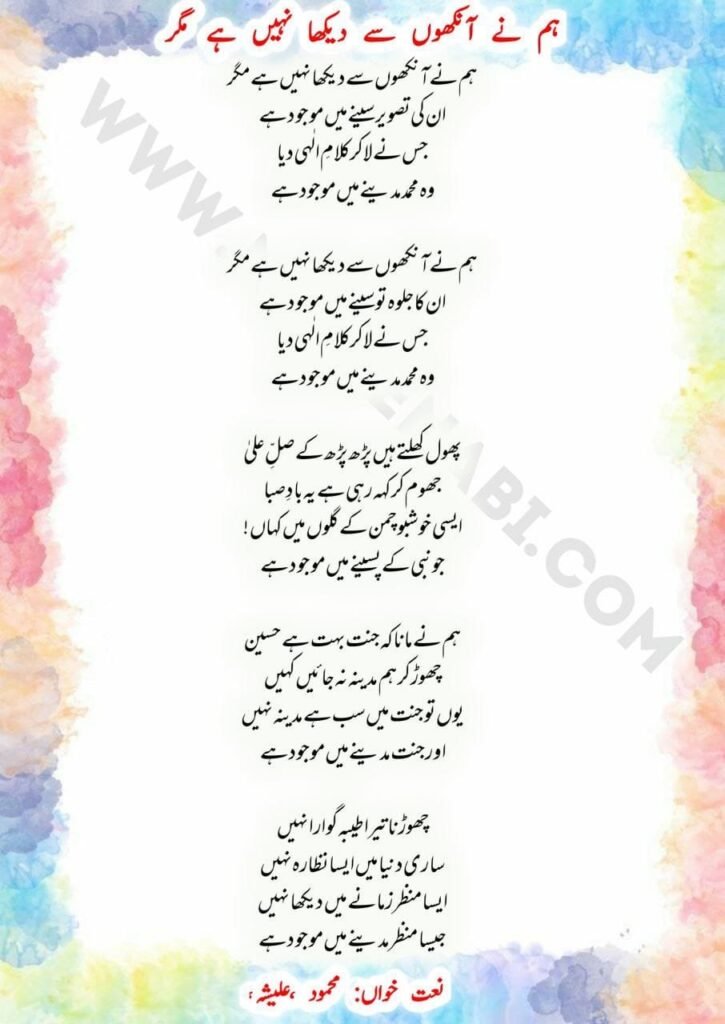 ہم نے آنکھوں سے دیکھا نہیں ہے مگر
ہم نے آنکھوں سے دیکھا نہیں ہے مگر
ان کی تصویر سینے میں موجود ہے
جس نے لا کر کلامِ الٰہی دیا
وہ محمد مدینے میں موجود ہے
ہم نے آنکھوں سے دیکھا نہیں ہے مگر
ان کا جلوہ تو سینے میں موجود ہے
جس نے لا کر کلامِ الٰہی دیا
وہ محمد مدینے میں موجود ہے
پھول کھلتے ہیں پڑھ پڑھ کے صلِّ علیٰ
جھوم کر کہہ رہی ہے یہ بادِ صبا
ایسی خوشبو چمن کے گلوں میں کہاں!
جو نبی کے پسینے میں موجود ہے
ہم نے مانا کہ جنت بہت ہے حسین
چھوڑ کر ہم مدینہ نہ جائیں کہیں
یوں تو جنت میں سب ہے مدینہ نہیں
اور جنت مدینے میں موجود ہے
چھوڑنا تیرا طیبہ گوارا نہیں
ساری دنیا میں ایسا نظارہ نہیں
ایسا منظر زمانے میں دیکھا نہیں
جیسا منظر مدینے میں موجود ہے
نعت خواں: محمود ،علیشہ،
WWW.
ENABI.COM